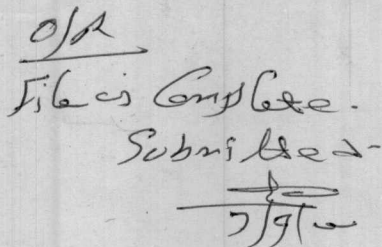 O/R
File is Complete.
Submitted